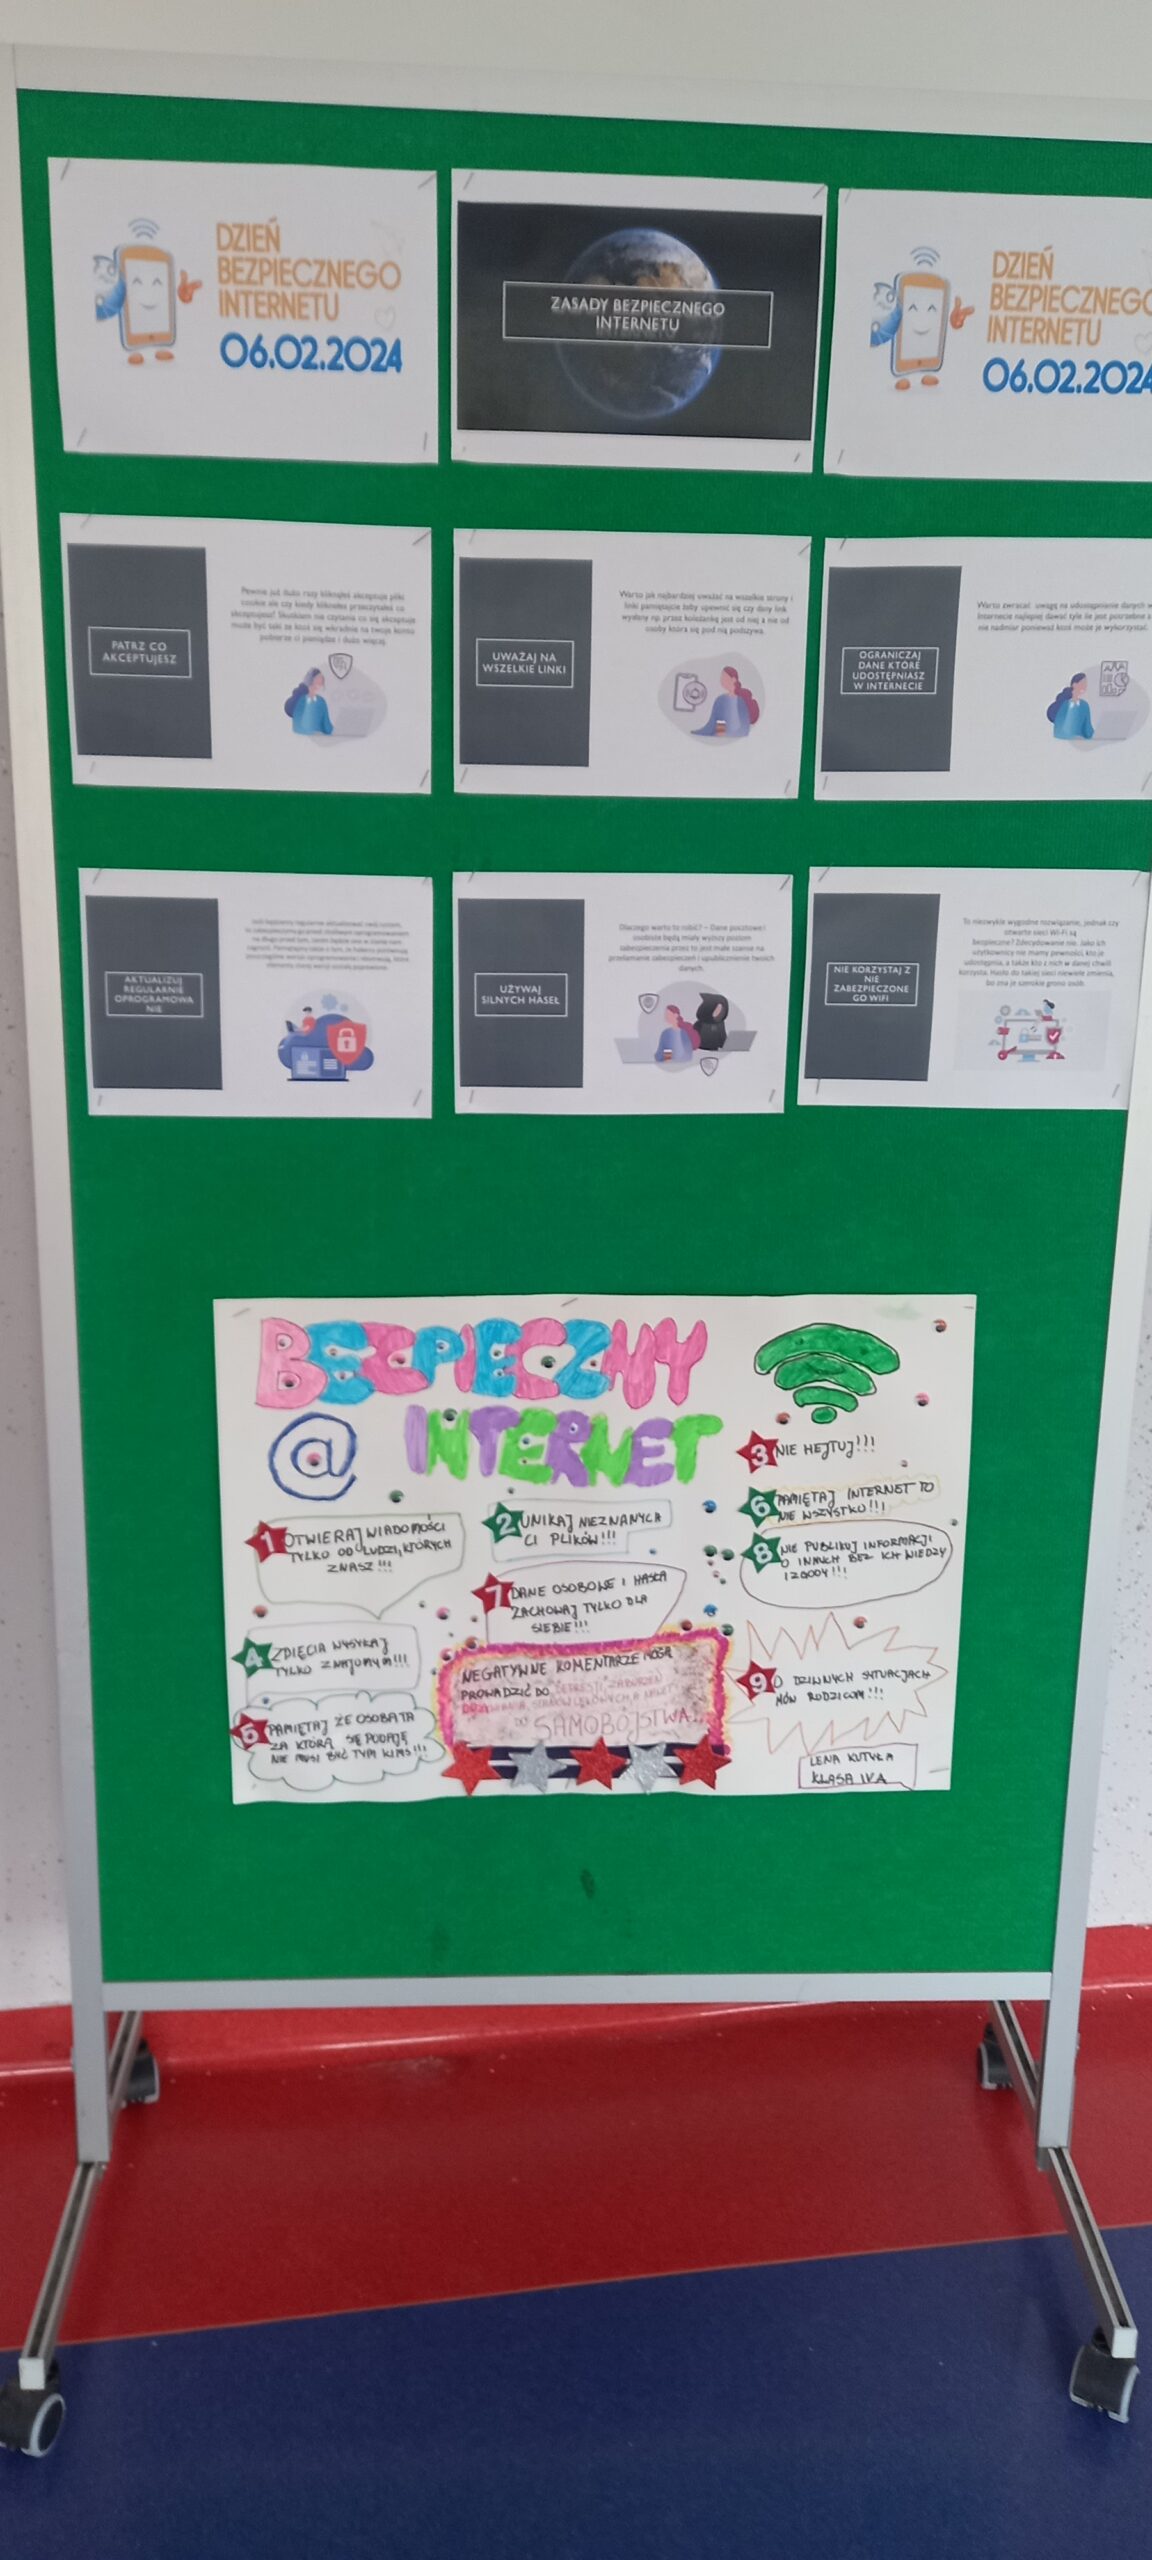 DZIEŃ
BEZPIECZNEGO
INTERNETU
06.02.2024
ZASADY BEZPIECZNEGO
INTERNETU
DZIEŃ
BEZPIECZNEGO
INTERNETU
06.02.2024
PATRZ CO
AKCEPTUJESZ
Pewnie już dużo razy kliknąłeś akceptuje pliki
cookie ale czy kiedy kliknąłeś przeczytałeś co
akceptujesz! Skutkiem nie czytania co się akceptuje
może być taki że ktoś się wkradnie na twoje konto
pobierze ci pieniądze i dużo więcej.
UWAŻAJ NA
WSZELKIE LINKI
Warto jak najbardziej uważać na wszelkie strony i
linki pamiętajcie żeby upewnić się czy dany link
wysłany np. przez koleżankę jest od niej a nie od
osoby która się pod nią podszywa.
OGRANICZAJ
DANE KTÓRE
UDOSTĘPNIASZ
W INTERNECIE
Warto zwracać uwagę na udostępnianie danych w
Internecie najlepiej dawać tyle ile jest potrzebne a
nie nadmiar ponieważ ktoś może je wykorzystać.
AKTUALIZUJ
REGULARNIE
OPROGRAMOWA
NIE
UŻYWAJ
SILNYCH HASEŁ
Dlaczego warto to robić? – Dane pocztowe i
osobiste będą miały wyższy poziom
zabezpieczenia przez to jest małe szanse na
przełamanie zabezpieczeń i upublicznienie twoich
danych.
NIE KORZYSTAJ Z
NIE
ZABEZPIECZONE
GO WIFI
To niezwykle wygodne rozwiązanie, jednak czy
otwarte sieci Wi-Fi są
bezpieczne? Zdecydowanie nie. Jako ich
użytkownicy nie mamy pewności, kto je
udostępnia, a także kto z nich w danej chwili
korzysta. Hasło do takiej sieci niewiele zmienia,
bo zna je szerokie grono osób.
BEZPIECZNY
@ INTERNET
1 OTWIERAJ WIADOMOŚCI
TYLKO OD LUDZI, KTÓRYCH
ZNASZ!!!
2 UNIKAJ NIEZNANYCH
CI PLIKÓW!!!
3 NIE HEJTUJ!!!
6 PAMIĘTAJ INTERNET TO
NIE WSZYSTKO!!!
8 NIE PUBLIKUJ INFORMACJI
O INNYCH BEZ ICH WIEDZY
I ZGODY!!!
7 DANE OSOBOWE I HASŁA
ZACHOWAJ TYLKO DLA
SIEBIE!!!
4 ZDJĘCIA WYSYŁAJ
TYLKO ZNAJOMYM!!!
5 PAMIĘTAJ ŻE OSOBA TA
ZA KTÓRĄ SIĘ PODAJĘ
NIE MUSI BYĆ TYM KIMŚ!!!
NEGATYWNE KOMENTARZE MOGĄ
PROWADZIĆ DO DEPRESJI, ZABURZEŃ
DO SAMOBÓJSTWA!
9 O DZIWNYCH SYTUACJACH
MÓW RODZICOM!!!
LENA KUTYŁA
KLASA IVA